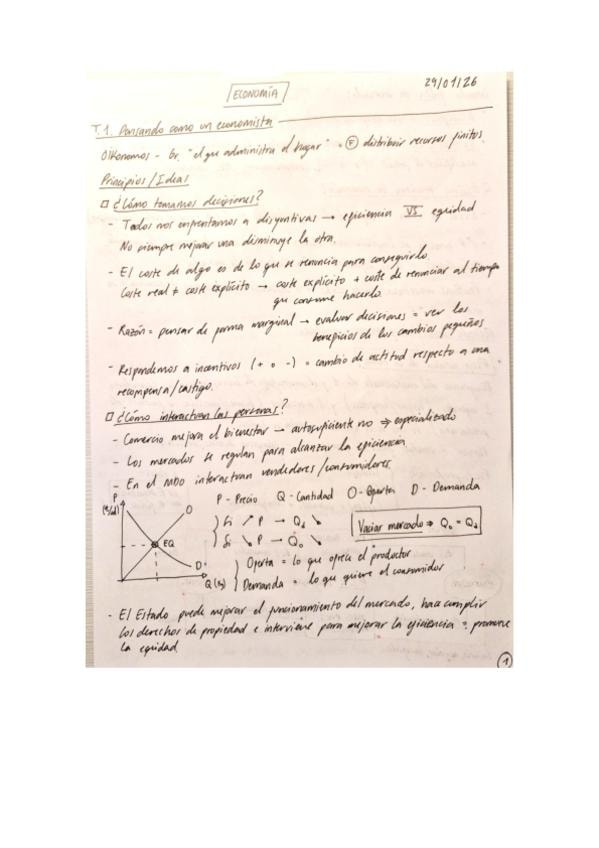 ECONOMÍA
29/01/26
T.1. Pensando como un economista
Oikonomos - Gr. "el que administra el hogar" = (F) distribuir recursos finitos.
Principios / Ideas
¿Cómo tomamos decisiones?
- Todos nos enfrentamos a disyuntivas → eficiencia VS equidad
No siempre mejorar una disminuye la otra.
- El coste de algo es de lo que se renuncia para conseguirlo.
Coste real ≠ coste explícito → coste explícito + coste de renunciar al tiempo
que consume hacerlo.
- Razón = pensar de forma marginal → evaluar decisiones = ver los
beneficios de los cambios pequeños
- Respondemos a incentivos (+ o -) = cambio de actitud respecto a una
recompensa/castigo.
¿Cómo interactúan las personas?
- Comercio mejora el bienestar → autosuficiente no ⇒ especializado
- Los mercados se regulan para alcanzar la eficiencia
- En el MDO interactúan vendedores/consumidores
P - Precio Q - Cantidad O - Oferta D - Demanda
P
O
EQ
D
Si ↗ P → Qd ↘
Si ↘ P → Qo ↘
Vaciar mercado ⇒ Qo = Qd
Oferta = lo que ofrece el productor
Demanda = lo que quiere el consumidor
- El Estado puede mejorar el funcionamiento del mercado, hace cumplir
los derechos de propiedad e interviene para mejorar la eficiencia promueve
la equidad
1